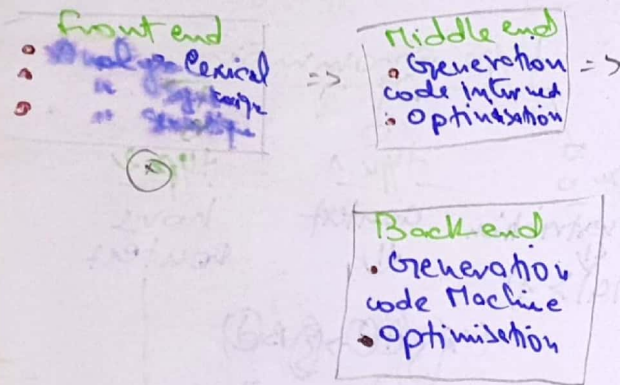 Front end
• Analyse lexical
• "
• "
=>
Middle end
• Generation
code interned
• Optimisation
=>
Back end
• Generation
code Machine
• Optimisation